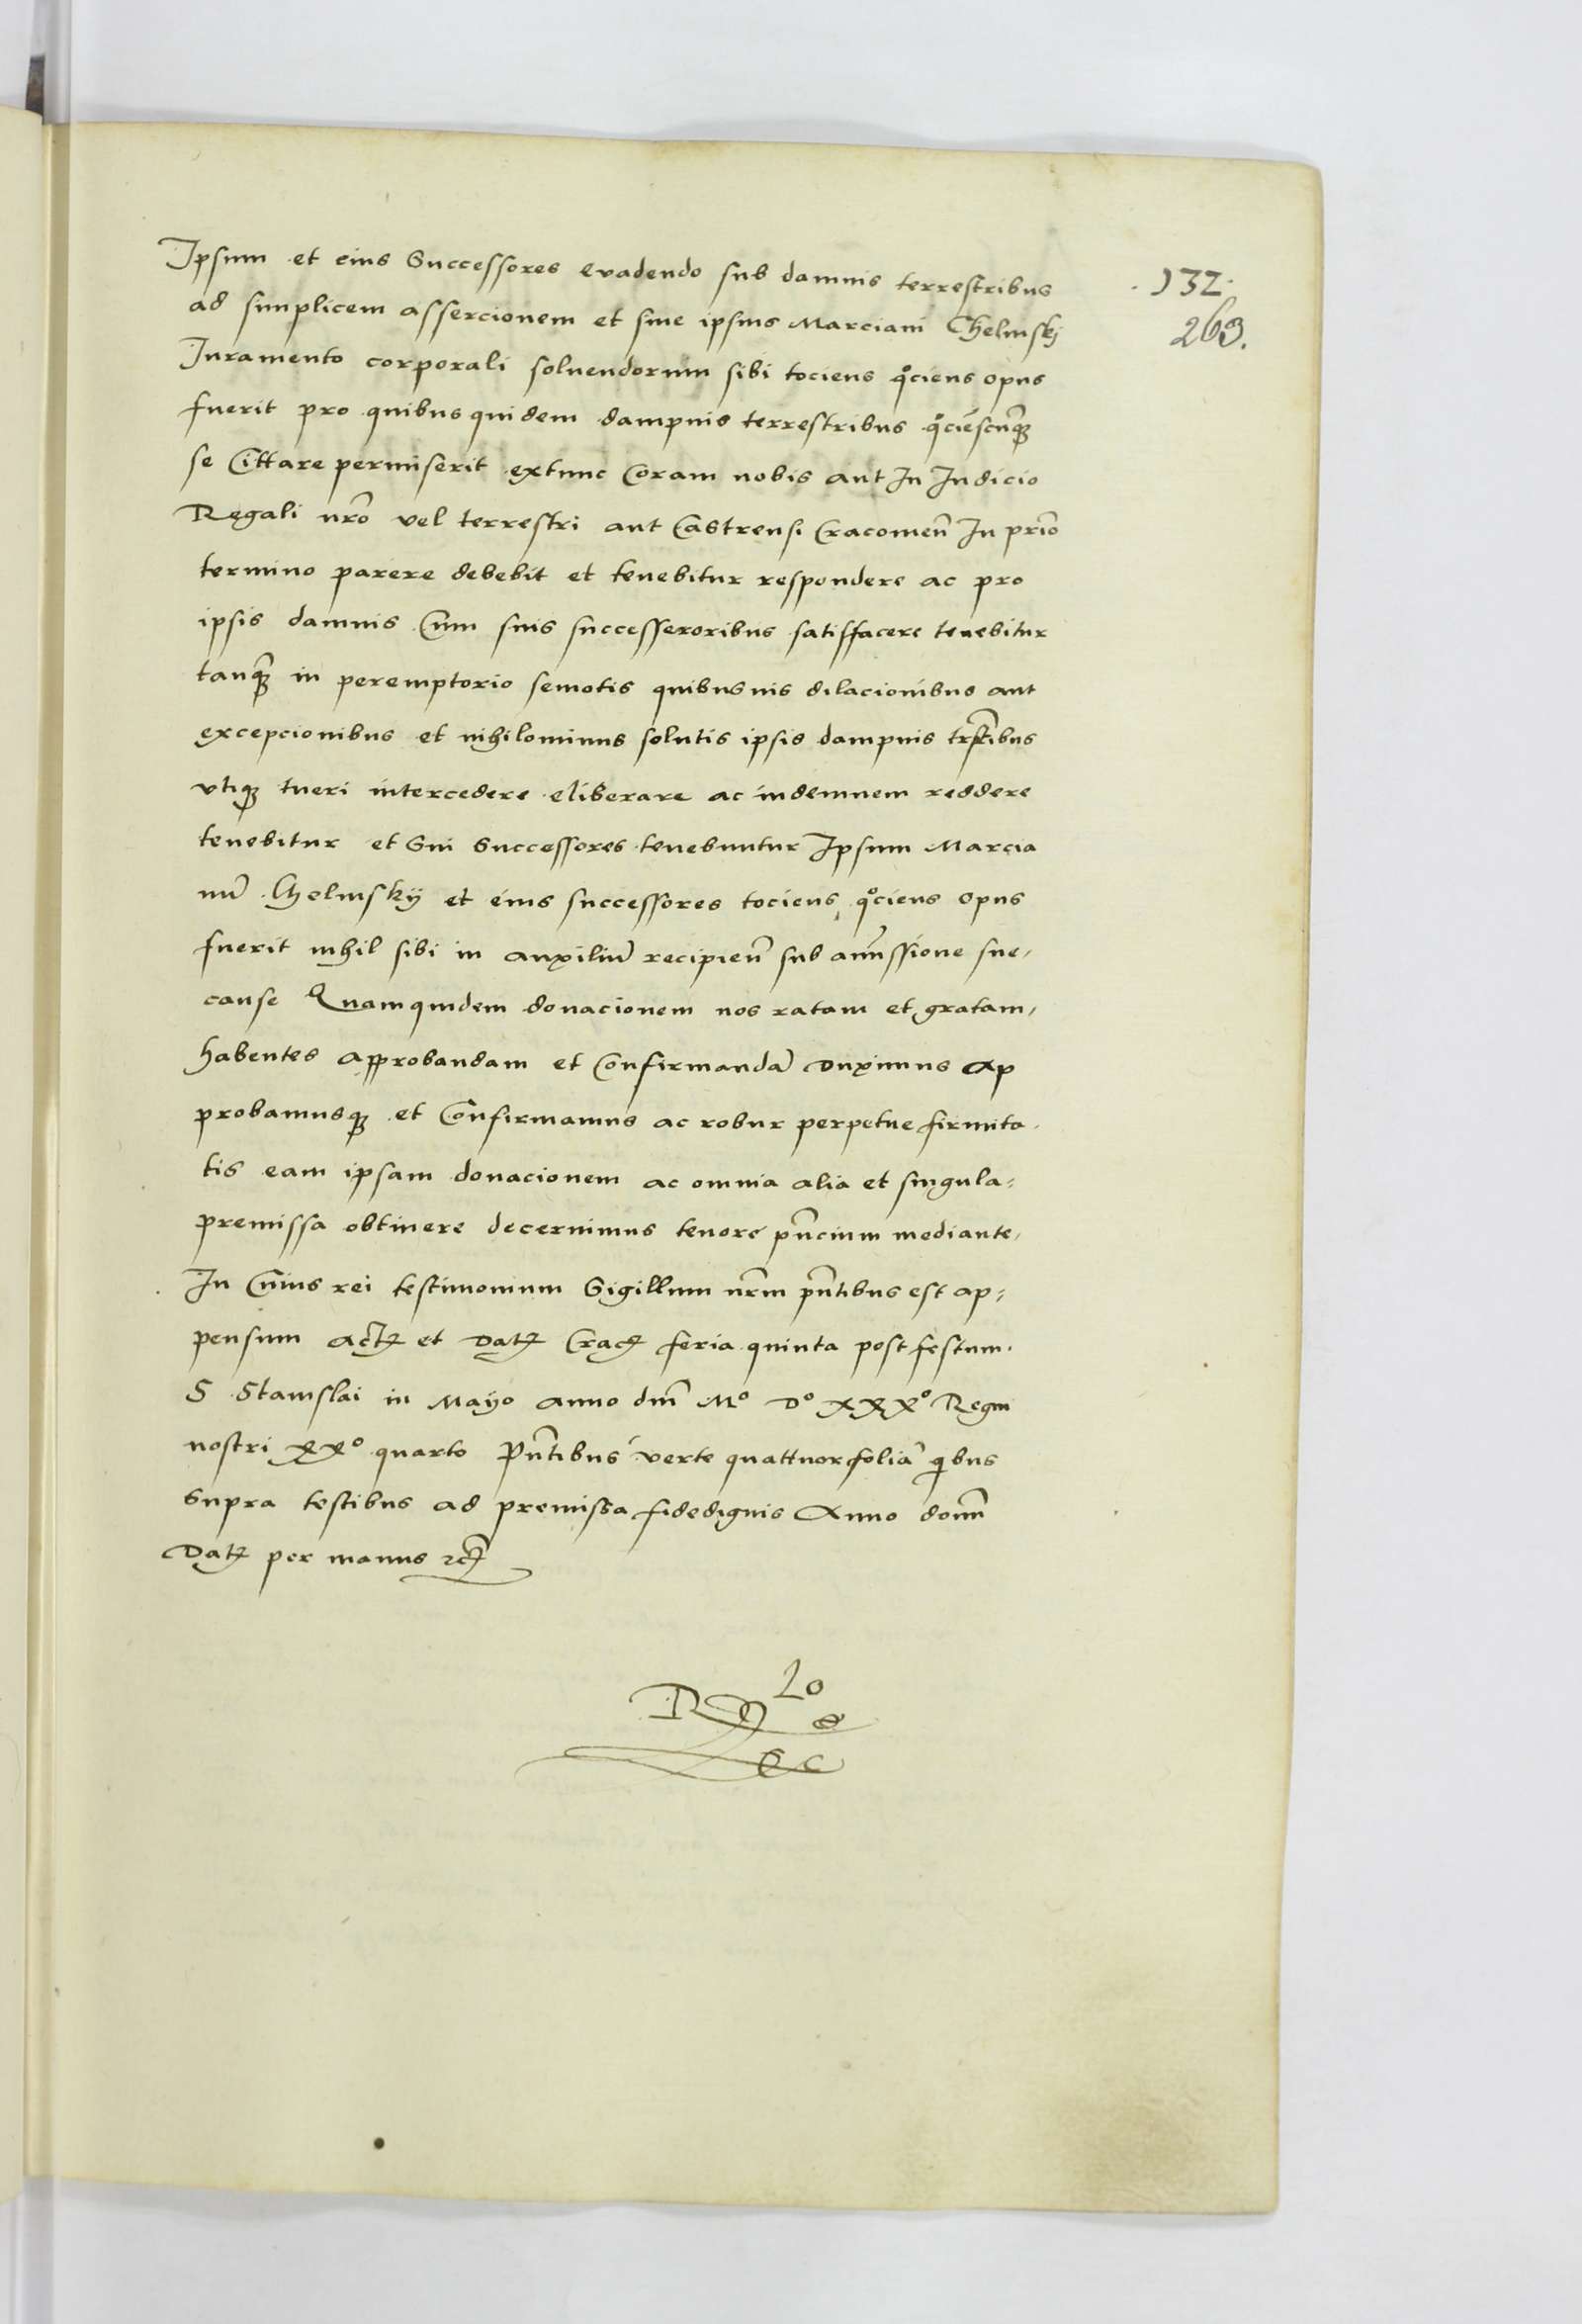 Ipsum et eius Successores evadendo sub damnis terrestribus
ad simplicem assercionem et sine ipsius Marciani Chelmskj
Iuramento corporali soluendorum sibi tociens qociens opus
fuerit pro quibus quidem dampnis terrestribus qociescunqȝ
se Cittare permiserit extunc Coram nobis aut In Iudicio
Regali nro vel terrestri aut Castrensi Cracouien In prio
termino parere debebit et tenebitur respondere ac pro
ipsis damnis Cum suis successeroribus satisfacere tenebitur
tanqȝ in peremptorio semotis quibusuis dilacionibus aut
excepcionibus et nihilominus solutis ipsis dampnis trstibus
vtiqȝ tueri intercedere eliberare ac indemnem reddere
tenebitur et Sui Successores tenebuntur Ipsum Marcia
nu Chelmskÿ et eius successores tociens qociens opus
fuerit nihil sibi in auxiliu recipien sub amissione sue,
cause Quamquidem donacionem nos ratam et gratam,
habentes approbandam et Confirmanda duximus Ap
probamusqȝ et Confirmamus ac robur perpetue firmita
tis eam ipsam donacionem ac omnia alia et singula,
premissa obtinere decernimus tenore pncium mediante,
In Cuius rei testimonium Sigillum nrm pntibus est ap,
pensum Act et Dat Crac feria quinta post festum
S Stanislai in Mayo anno dni Mº Dº xxxº Regni
nostri xxº quarto Pntibus verte quattuor folia qibus
supra testibus ad premissa fidedignis Anno domi
Dat per manus rc
132
263.